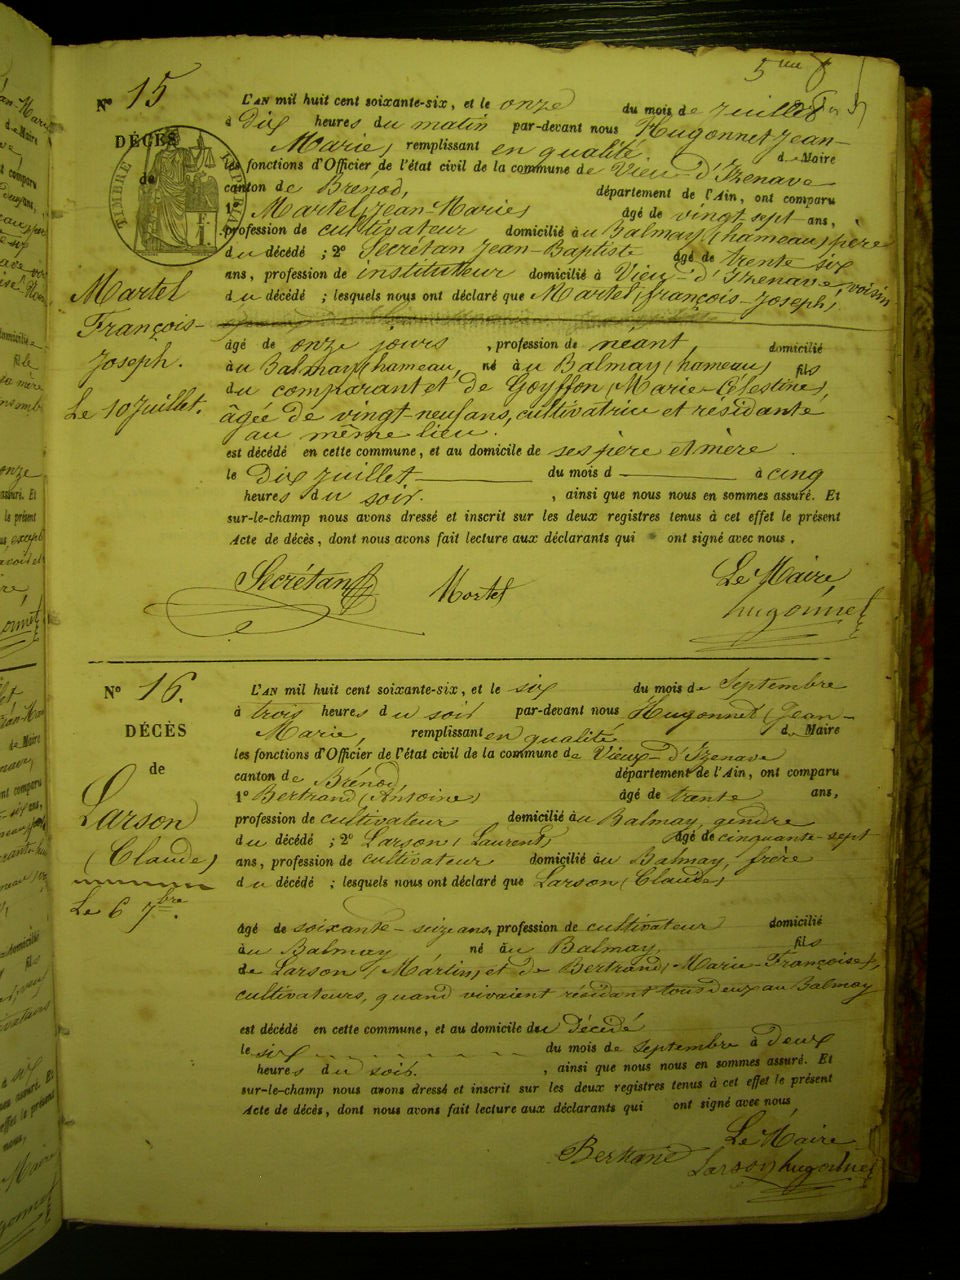 5me
N° 15
L'an mil huit cent soixante-six, et le onze du mois de Juillet
à dix heures du matin par-devant nous Hugonnet Jean-
DÉCÈS
Marie, remplissant en qualité d Maire
les fonctions d'Officier de l'état civil de la commune de Vieu-d'Izenave
de
canton de Brenod, département de l'Ain, ont comparu
TIMBRE IMPÉRIAL
1° Martel, Jean-Marie, âgé de vingt sept ans,
profession de cultivateur domicilié à u Balmay, (hameau) père
du décédé ; 2° Secrétan Jean-Baptiste âgé de trente six
ans, profession de instituteur domicilié à Vieu-d'Izenave, voisin
Martel
François-
Joseph.
Le 10 Juillet.
du décédé ; lesquels nous ont déclaré que Martel, françois-Joseph,
âgé de onze jours , profession de néant, domicilié
àu Balmay (hameau, né à u Balmay (hameau) fils
du comparant et de Goyffon, (Marie-Célestine),
âgée de vingt-neuf ans, cultivatrice et résidante
au même lieu.
est décédé en cette commune, et au domicile de ses père et mère .
le Dix Juillet du mois d à cinq
heures du soir. , ainsi que nous nous en sommes assuré. Et
sur-le-champ nous avons dressé et inscrit sur les deux registres tenus à cet effet le présent
Acte de décès, dont nous avons fait lecture aux déclarants qui ont signé avec nous .
Secrétan Martel Le Maire,
hugonnet
N° 16.
DÉCÈS
de
Larson
(Claude)
Le 6 7bre.
L'an mil huit cent soixante-six, et le six du mois de Septembre
à trois heures du soir par-devant nous Hugonnet, (Jean-
Marie, remplissant en qualité d Maire
les fonctions d'Officier de l'état civil de la commune de Vieux-d'Izenave
canton de Brenod département de l'Ain, ont comparu
1° Bertrand (Antoine) âgé de trente ans,
profession de cultivateur domicilié à u Balmay, gendre
du décédé ; 2° Larson, Laurent, âgé de cinquante-sept
ans, profession de cultivateur domicilié àu Balmay, frère
du décédé ; lesquels nous ont déclaré que Larson, (Claude)
âgé de soixante-seize ans, profession de cultivateur domicilié
àu Balmay né àu Balmay fils
de Larson, (Martin, et de Bertrand, Marie-Françoise,
cultivateurs, quand vivaient résidant tous deux au Balmay
est décédé en cette commune, et au domicile du Décédé
le six du mois de septembre à deux
heures du soir. , ainsi que nous nous en sommes assuré. Et
sur-le-champ nous avons dressé et inscrit sur les deux registres tenus à cet effet le présent
Acte de décès, dont nous avons fait lecture aux déclarants qui ont signé avec nous
Le Maire
Bertrand Larson hugonnet